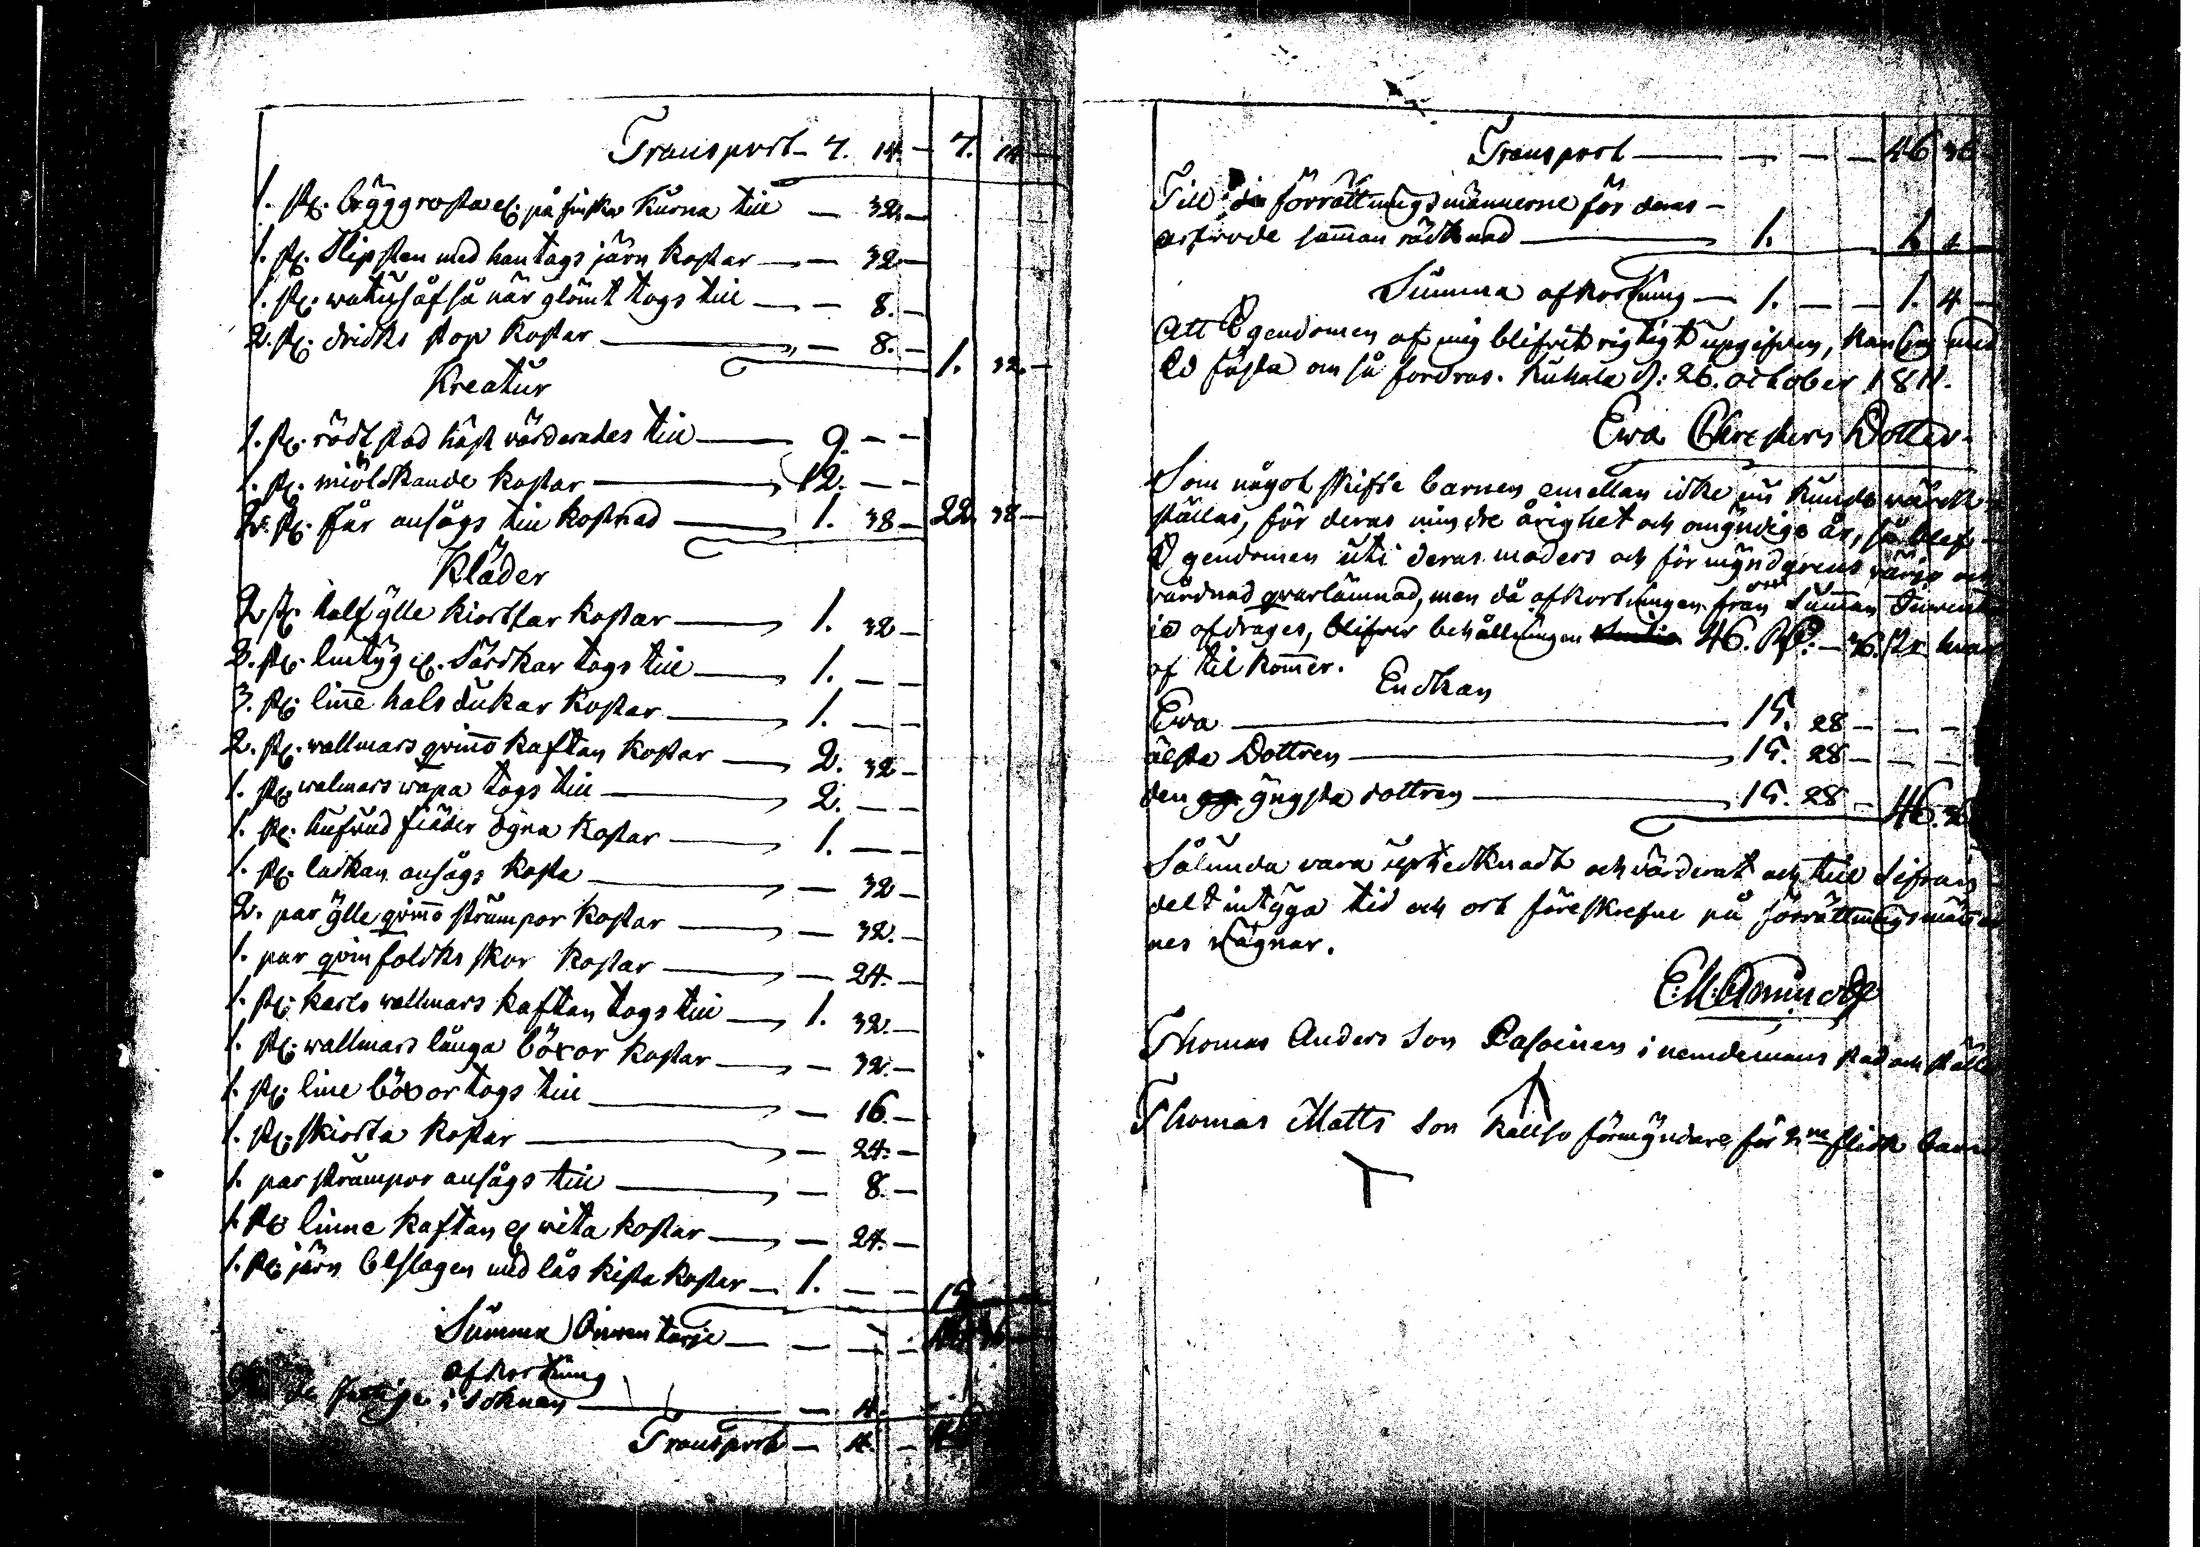 Transport - 7. 14. - 7. 14 -
1. st. bryggrosta el. på finska Kurna till — 32. -
1. st. Slipsten med hantags järn kostar — 32 -
1. st. så när glömt togs till — 8. -
2. st. dricks stop kostar — 8. - 1. 32. -
Kreatur
1. st. rödt stod häst värderades till — 9. - -
1. st. miölckande kostar — 12. - -
2. st. får ansågs till kostnad — 1. 38 - 22. 38 -
Kläder
2. st. half ylle kiortlar kostar — 1. 32 -
2. st. lintyg el. Särckar togs till — 1. - -
3. st. linne halsdukar kostar — 1. - -
2. st. wallmars qvins kaftan kostar — 2. 32 -
1. st. walmars wapa togs till — 2. - -
1. st. hufvud fiäder dyna kostar — 1. - -
1. st. lackan ansågs kosta — 32 -
2. par ylle qvins strumpor kostar — 32. -
1. par qvinfolcks skor kostar — 24. -
1. st. karls wallmars kaftan togs till — 1. 32. -
1. st. wallmars långa böxor kostar — 32. -
1. st. line böxor togs till — 16 -
1. st. skiorta kostar — 24. -
1. par strumpor ansågs till — 8. -
1. st. linne kaftan el. wita kostar — 24. -
1. st. järn beslagen med lås kista kostar — 1. - - 15
Summa Inventarje — - - -
afkortning
i Soknen — 4. -
Transport — 4. -
Transport — - - - 46 36
Till förrättningsmännerne för deras -
arfvode samman räcknad — 1. 1. 4
Summa afkortning — 1. - - 1. 4 -
Att Egendomen af mig blifvit rigtigt upgifven, kan jag med
Ed fästa om så fordras. Kuhala d: 26. october 1811.
Ewa Christers Dotter.
Som något skifte barnen emellan icke nu kunde wärck-
ställas, för deras mindre årighet och omyndige år, så blef -
Egendomen uti deras moders och förmyndarens wärjo och
vårdnad qvarlämnad, men då afkortningen från Summan
afdrages, blifver behållningen 46. Rd. - 36. hvar
af tilkommer.
Enckan
Ewa — 15. 28 - - -
älsta Dottren — 15. 28 - - -
den yngsta dottren — 15. 28 - 46. 36
Sålunda vara uptecknadt och värderat och till
delt intyga tid och ort föreskrefne på förrättningsmän
nes wägnar.
E. M. Amnorin
Thomas Anders Son Pasoinen i nemdemans stad och ställe
Thomas Matts Son förmyndare för 2ne flick barn